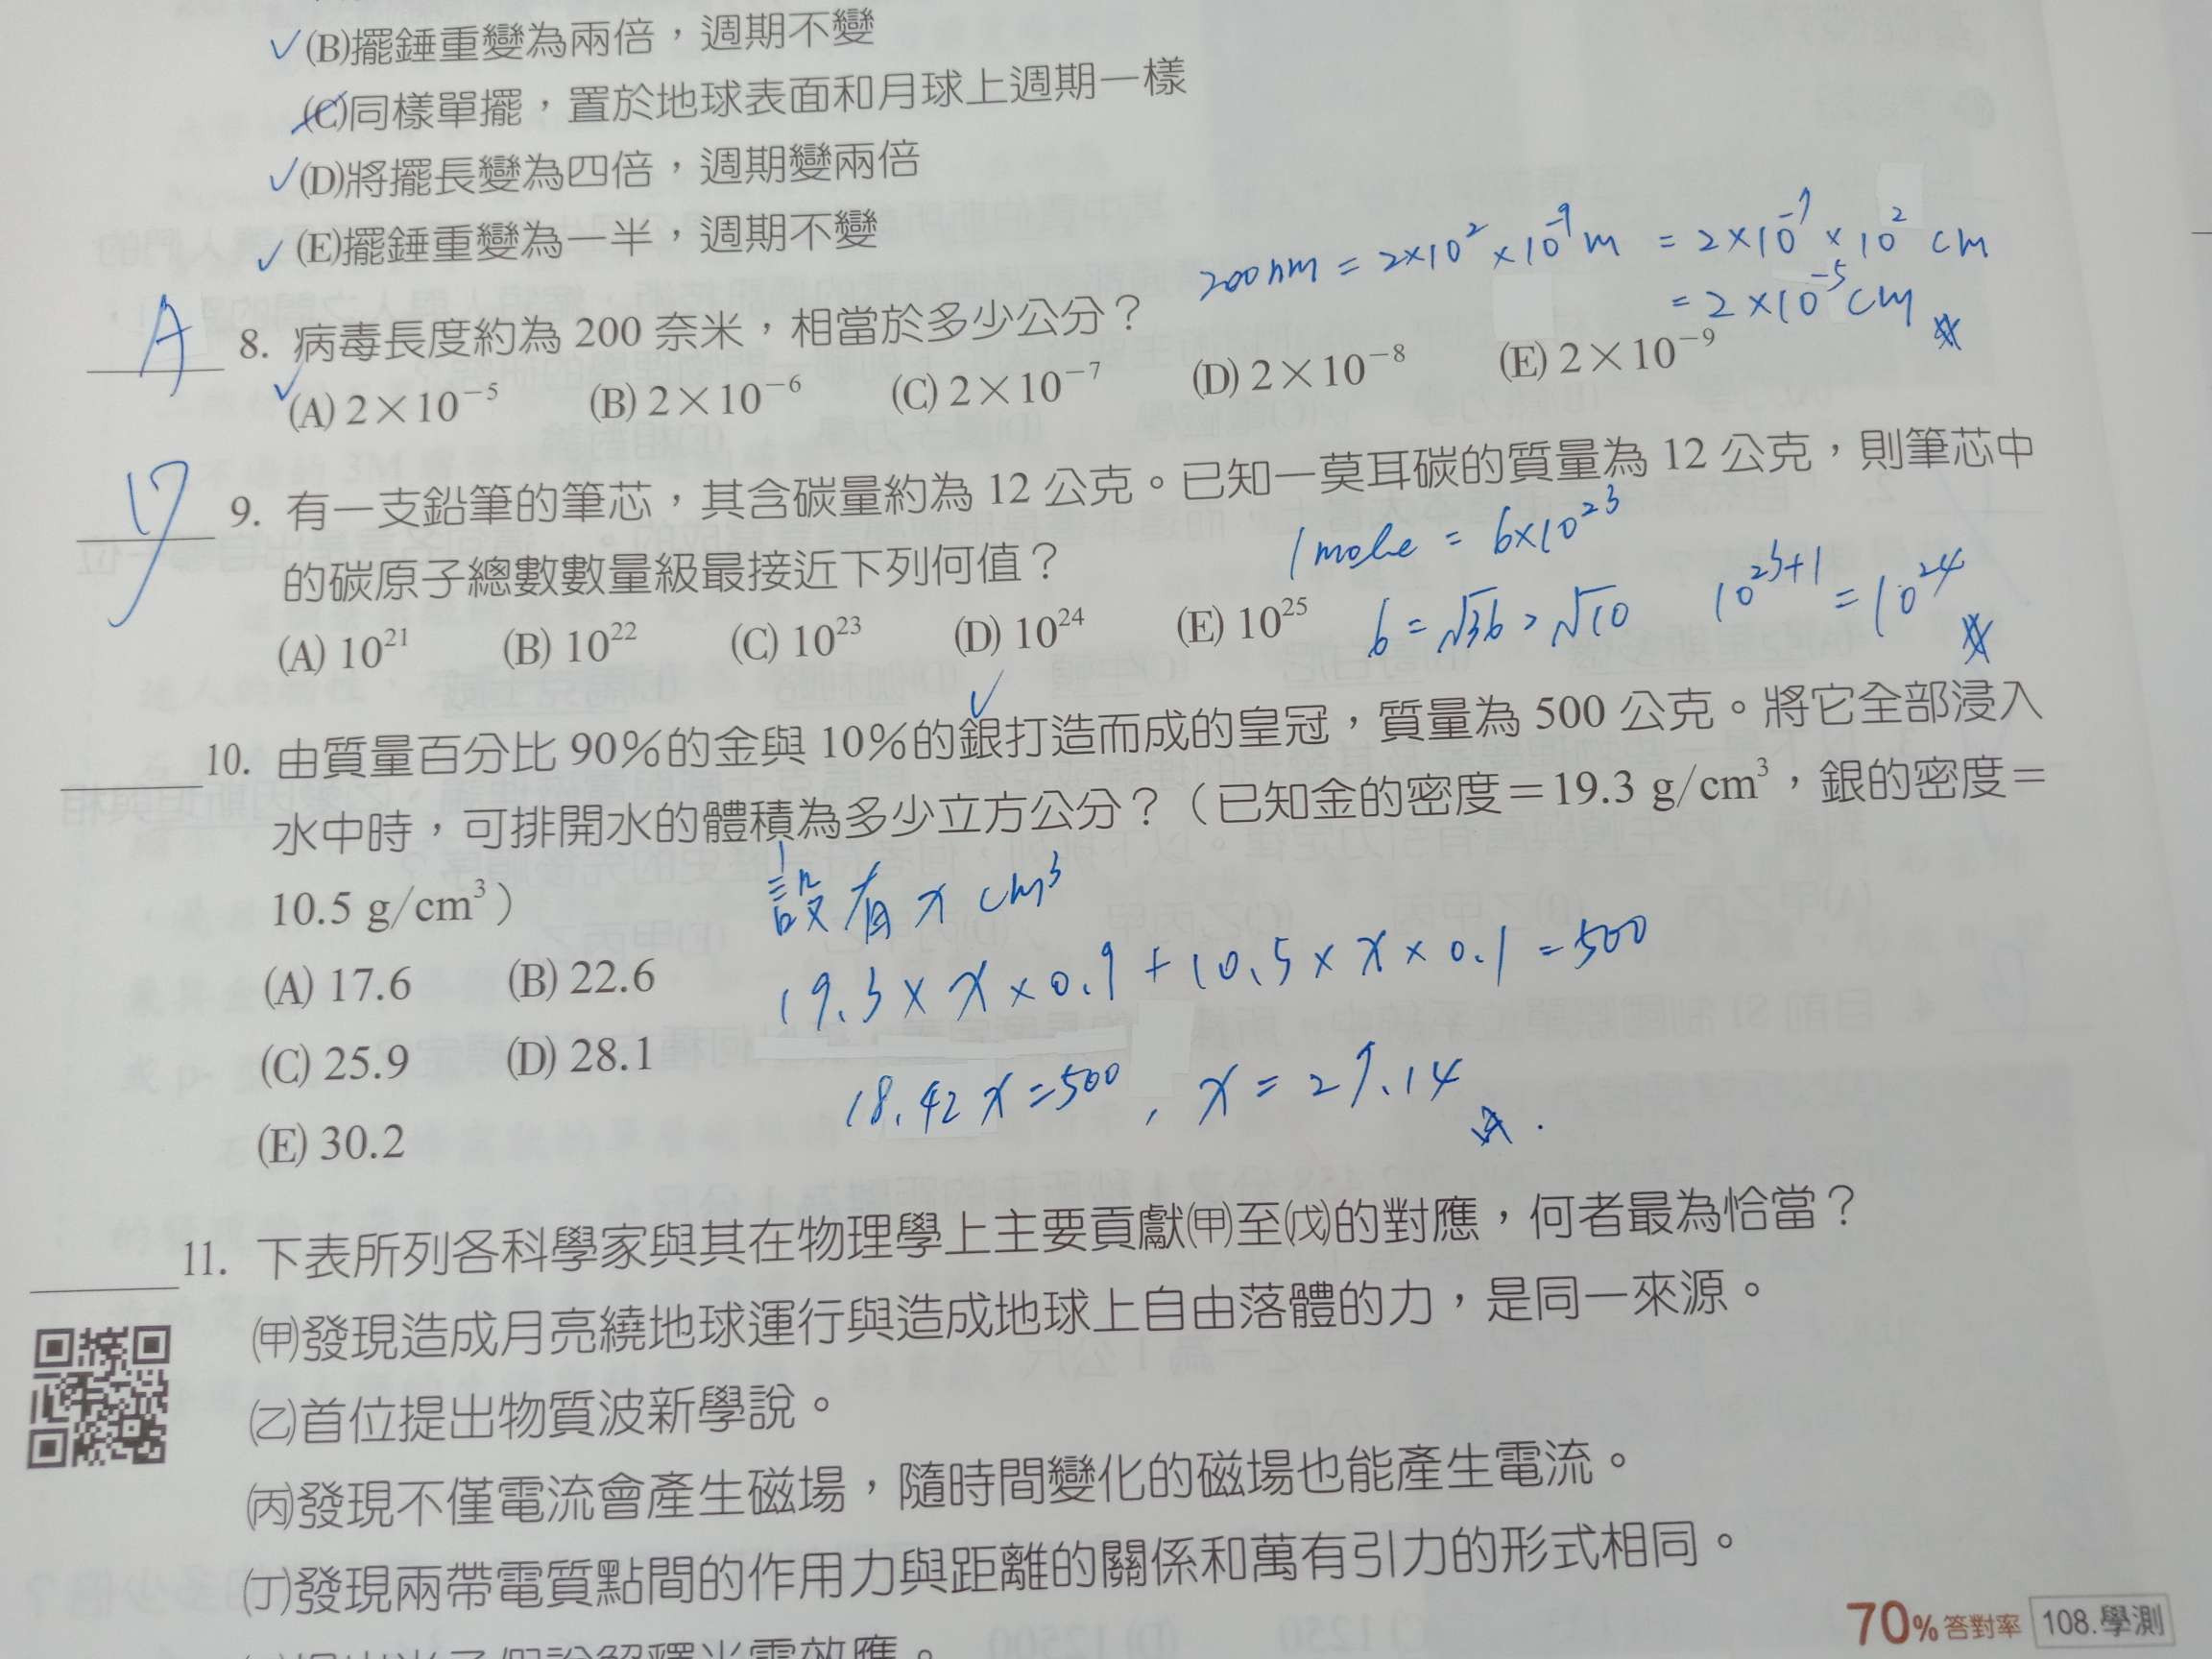 ✓(B)擺錘重變為兩倍，週期不變
(C)同樣單擺，置於地球表面和月球上週期一樣
✓(D)將擺長變為四倍，週期變兩倍
✓(E)擺錘重變為一半，週期不變
200nm = 2×10² × 10⁻⁹ m = 2×10⁻⁷ × 10² cm
= 2×10⁻⁵ cm
A 8. 病毒長度約為 200 奈米，相當於多少公分？
✓(A) 2×10⁻⁵ (B) 2×10⁻⁶ (C) 2×10⁻⁷ (D) 2×10⁻⁸ (E) 2×10⁻⁹
9. 有一支鉛筆的筆芯，其含碳量約為 12 公克。已知一莫耳碳的質量為 12 公克，則筆芯中
的碳原子總數數量級最接近下列何值？
1 mole = 6×10²³
(A) 10²¹ (B) 10²² (C) 10²³ (D) 10²⁴ (E) 10²⁵
✓
6 = √36 > √10 10²³⁺¹ = 10²⁴
10. 由質量百分比 90%的金與 10%的銀打造而成的皇冠，質量為 500 公克。將它全部浸入
水中時，可排開水的體積為多少立方公分？（已知金的密度＝19.3 g/cm³，銀的密度＝
10.5 g/cm³）
設有 x cm³
19.3 × x × 0.9 + 10.5 × x × 0.1 = 500
18.42 x = 500 , x = 27.14
(A) 17.6 (B) 22.6
(C) 25.9 (D) 28.1
(E) 30.2
11. 下表所列各科學家與其在物理學上主要貢獻(甲)至(戊)的對應，何者最為恰當？
(甲)發現造成月亮繞地球運行與造成地球上自由落體的力，是同一來源。
(乙)首位提出物質波新學說。
(丙)發現不僅電流會產生磁場，隨時間變化的磁場也能產生電流。
(丁)發現兩帶電質點間的作用力與距離的關係和萬有引力的形式相同。
70%答對率 108.學測